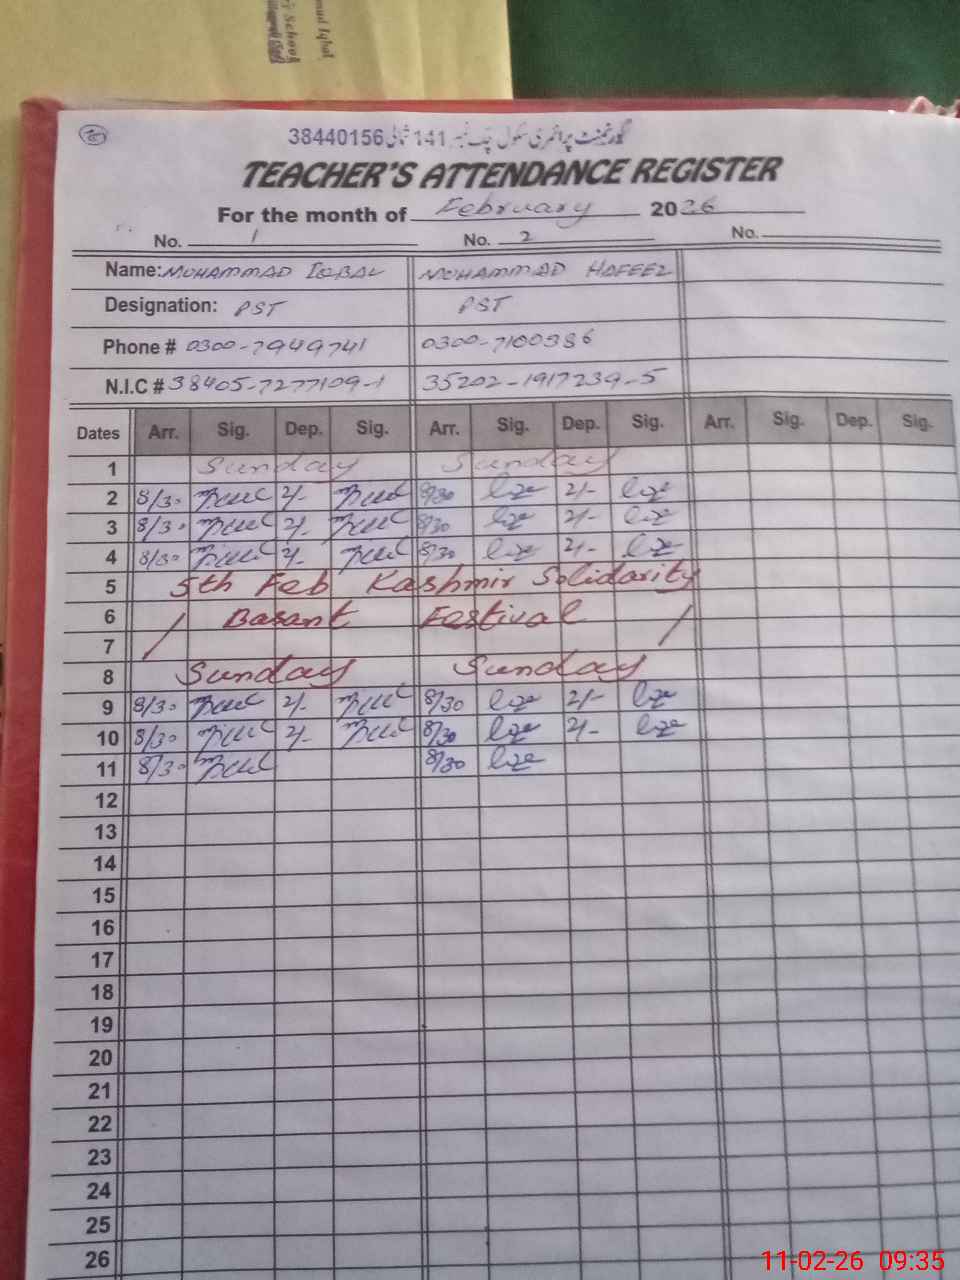 mud Iqbal
School
گورنمنٹ پرائمری سکول چک نمبر 141 شمالی 38440156
TEACHER'S ATTENDANCE REGISTER
For the month of February 2026
No. 1 No. 2 No.
Name: MUHAMMAD IQBAL MUHAMMAD HAFEEZ
Designation: PST PST
Phone # 0300-7949741 0300-7100386
N.I.C # 38405-7277109-1 35202-1917239-5
Dates Arr. Sig. Dep. Sig. Arr. Sig. Dep. Sig. Arr. Sig. Dep. Sig.
1 Sunday Sunday
2 8/30 2/- 8/30 2/-
3 8/30 2/- 8/30 2/-
4 8/30 2/- 8/30 2/-
5 5th Feb Kashmir Solidarity
6 Basant Festival
7
8 Sunday Sunday
9 8/30 2/- 8/30 2/-
10 8/30 2/- 8/30 2/-
11 8/30 8/30
12
13
14
15
16
17
18
19
20
21
22
23
24
25
26
11-02-26 09:35